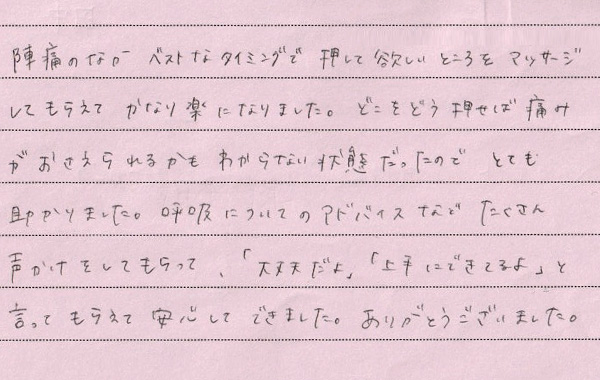 陣痛のなか ベストなタイミングで 押して欲しいところを マッサージ
してもらえて かなり楽になりました。どこをどう押せば痛み
がおさえられるかも わからない状態だったので とても
助かりました。呼吸についてのアドバイスなど たくさん
声かけをしてもらって、「大丈夫だよ」「上手にできてるよ」と
言ってもらえて安心してできました。ありがとうございました。